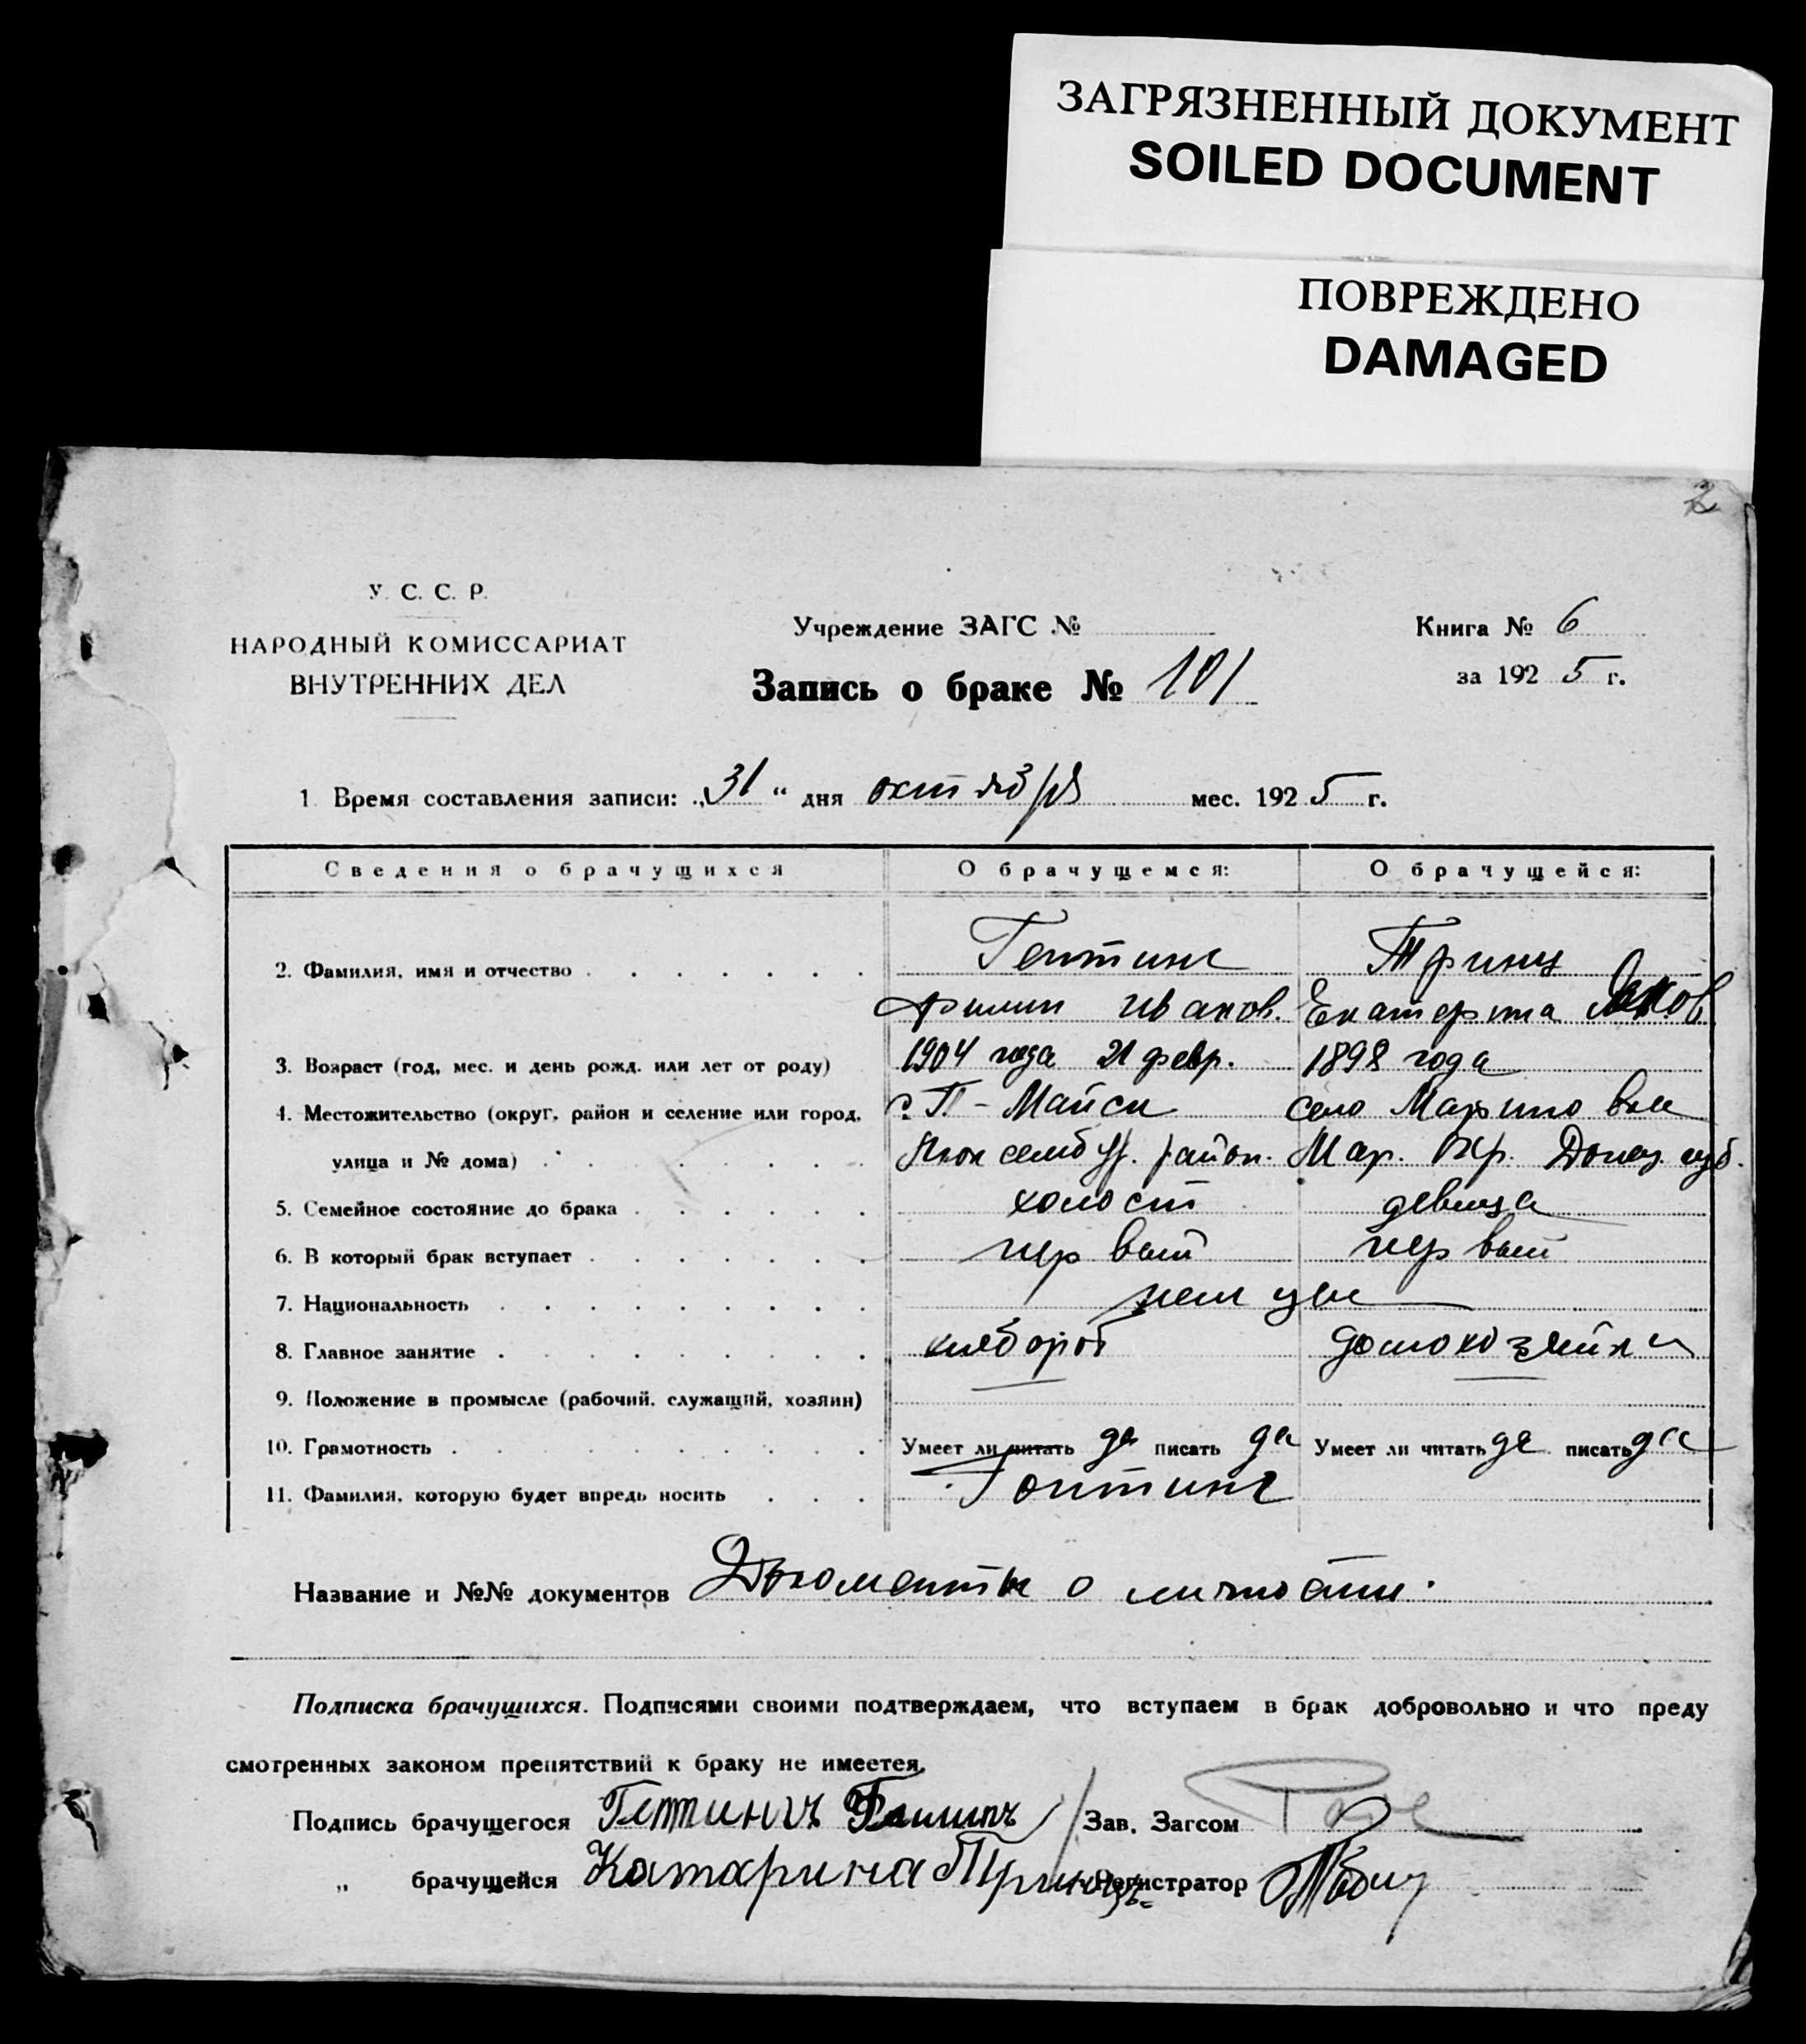 ЗАГРЯЗНЕННЫЙ ДОКУМЕНТ
SOILED DOCUMENT
ПОВРЕЖДЕНО
DAMAGED
2
У. С. С. Р.
НАРОДНЫЙ КОМИССАРИАТ
ВНУТРЕННИХ ДЕЛ
Учреждение ЗАГС №
Запись о браке № 101
Книга № 6
за 1925 г.
1. Время составления записи: „31“ дня октября мес. 1925 г.
Сведения о брачущихся О брачущемся: О брачущейся:
2. Фамилия, имя и отчество Гептинг Принц
Филип Иванов. Екатерина Яков
3. Возраст (год, мес. и день рожд. или лет от роду) 1904 года 21 февр. 1898 года
4. Местожительство (округ, район и селение или город, с. П-Майск село Марино
улица и № дома) Люксембур. район. Мар. Окр. Донец. губ.
5. Семейное состояние до брака холост девица
6. В который брак вступает первый первый
7. Национальность немцы
8. Главное занятие хлебороб домохозяйк
9. Положение в промысле (рабочий, служащий, хозяин)
10. Грамотность Умеет ли читать да писать да Умеет ли читать да писать да
11. Фамилия, которую будет впредь носить Гептинг
Название и №№ документов Документы о личности.
Подписка брачущихся. Подписями своими подтверждаем, что вступаем в брак добровольно и что преду
смотренных законом препятствий к браку не имеется.
Подпись брачущегося Гептингъ Филипъ Зав. Загсом
„ брачущейся Катарина Принцъ Регистратор